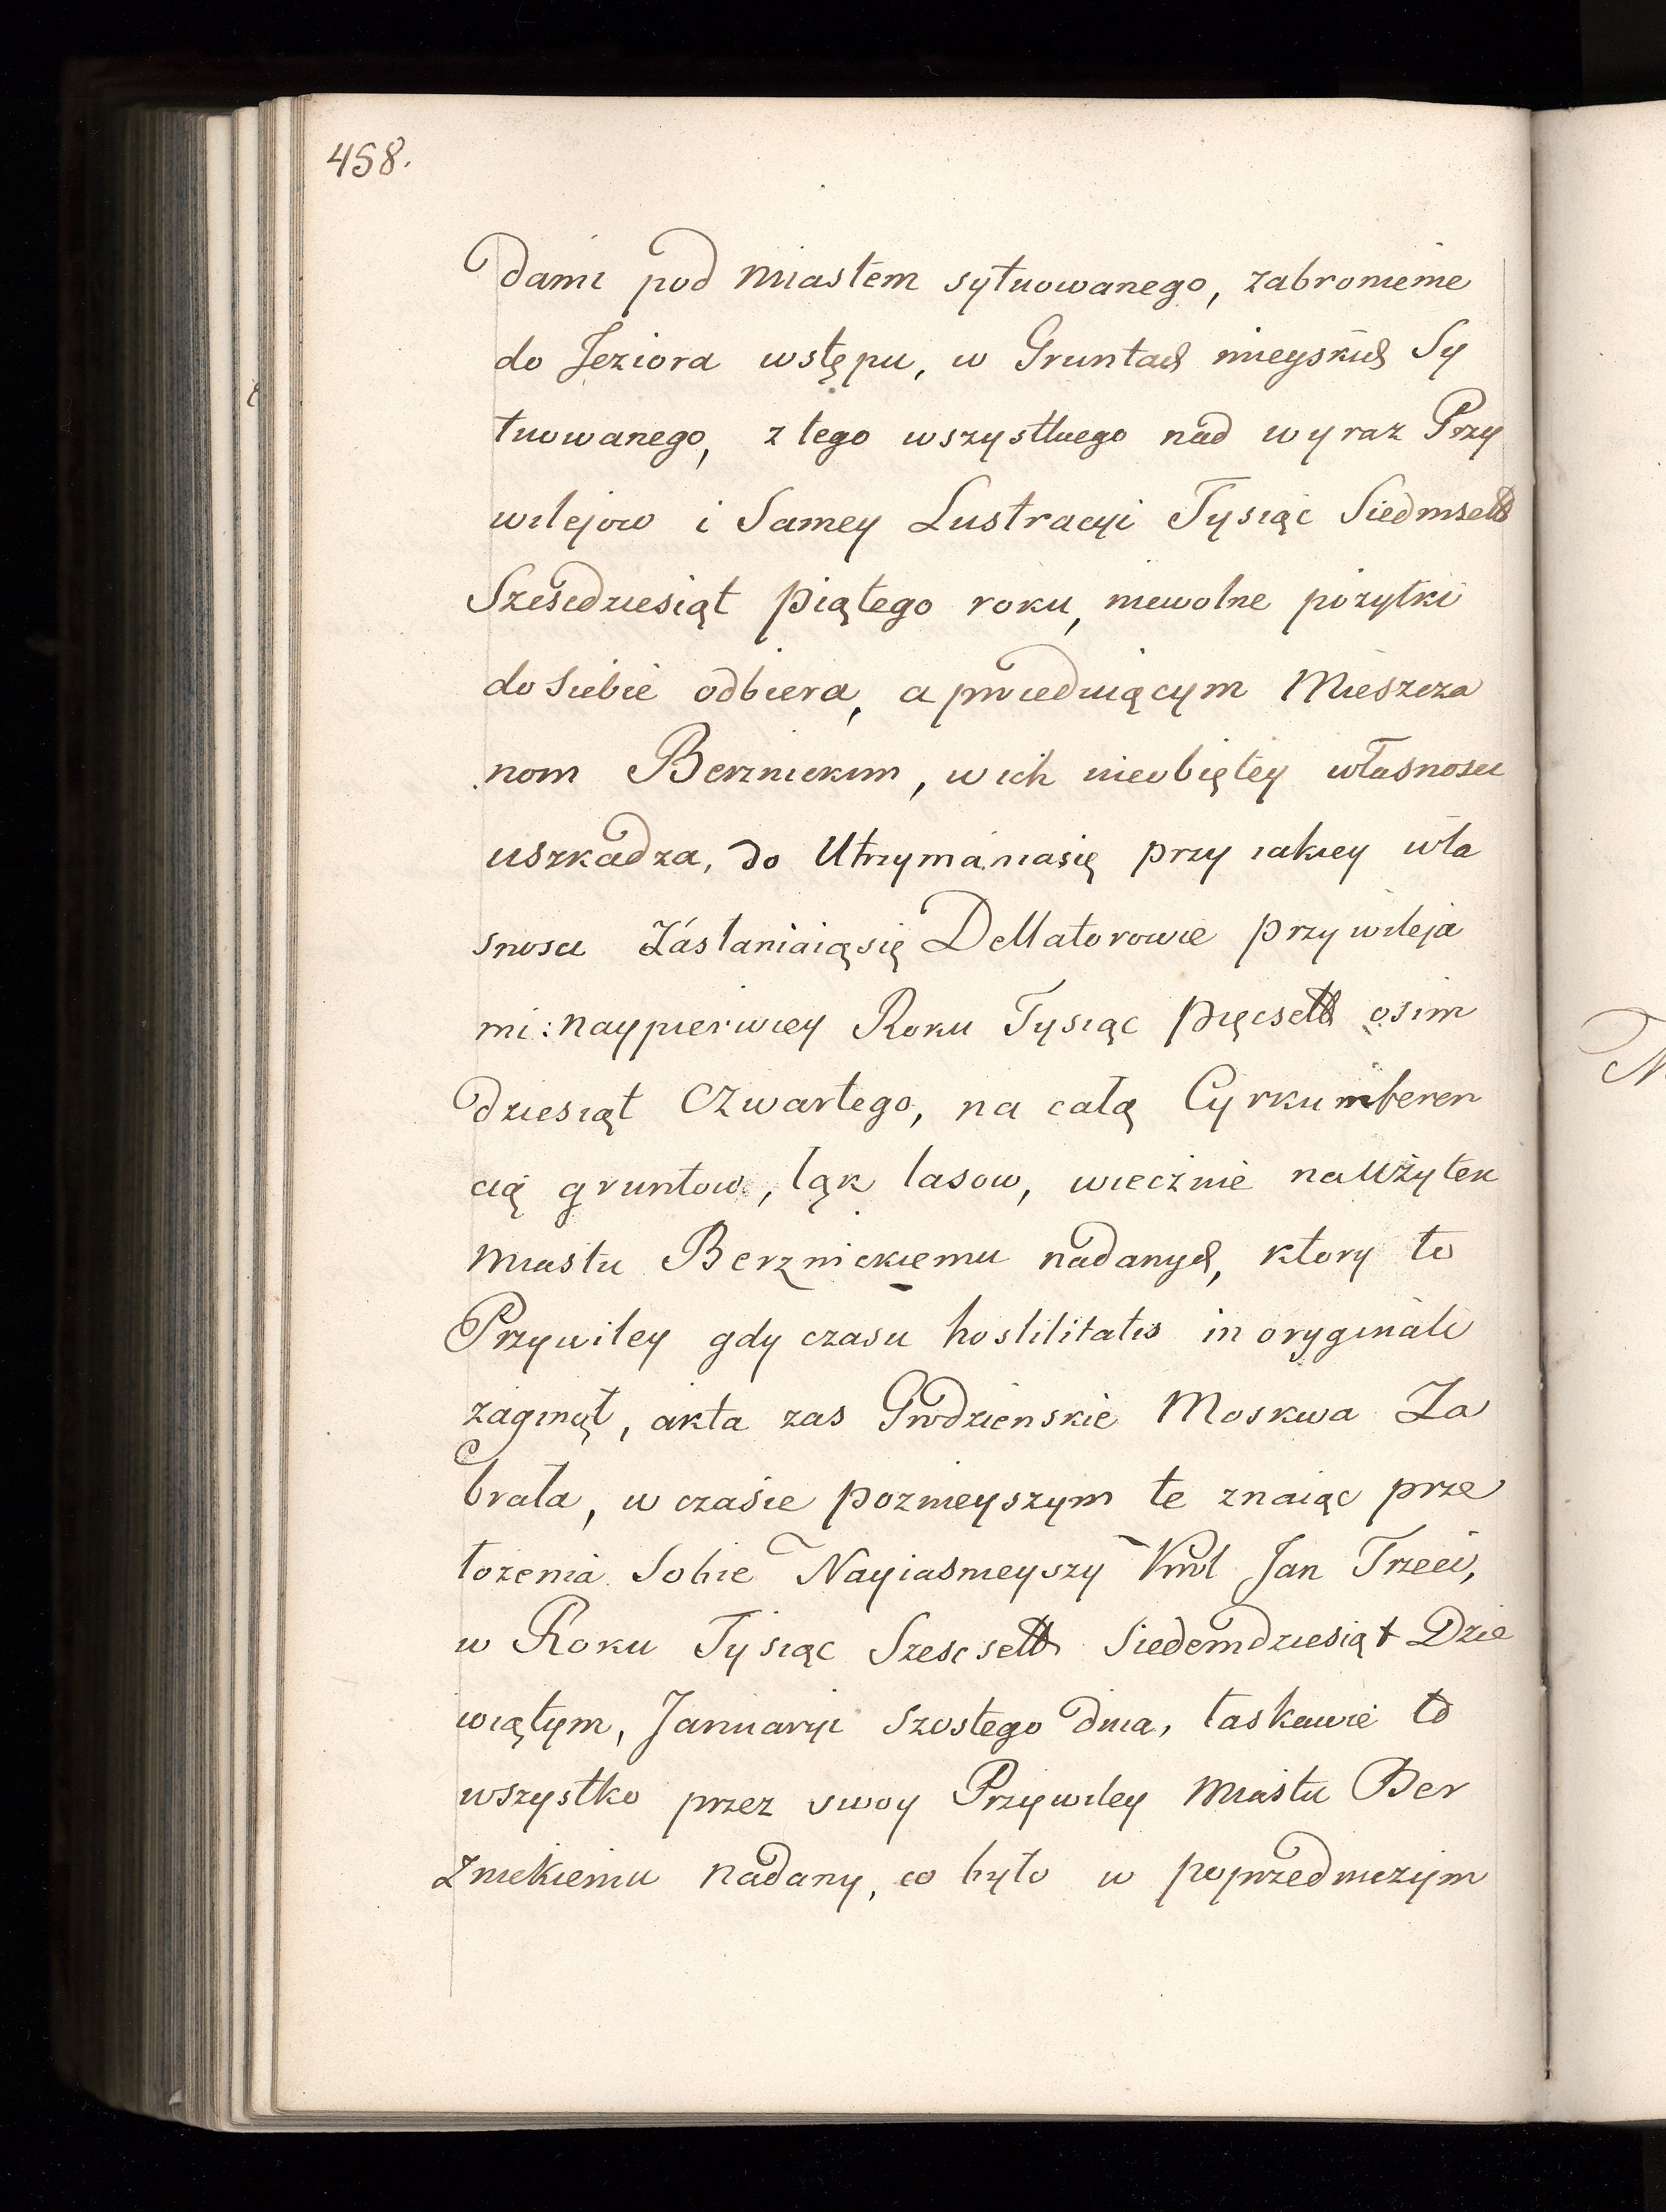 458.
dami pod Miastem sytuowanego, zabronienie
do Jeziora wstępu, w Gruntach mieyskich Sy
tuowanego, z tego wszystkiego nad wyraz Przy
wilejow i Samey Lustracyi Tysiąc Siedmset
Sześcdziesiąt piątego roku, niewolne pożytki
do siebie odbiera, a
Mieszcza
nom Berznickim, w ich nieobiętey własnosci
uszkadza, do Utrzymania się przy iakiey wła
snosci Zásłaniaią się Dellatorowie przywileja
mi: naypierwiey Roku Tysiąc pięcset osim
dziesiąt czwartego, na całą Cyrkumferen
cią gruntow, łąk lasow, wiecznie na Użytek
Miastu Berznickiemu nadanych, ktory to
Przywiley gdy czasu hostilitatis in oryginali
zaginął, akta zas Grodzienskie Moskwa Za
brała, w czasie poznieyszym te znaiąc prze
łożenia Sobie Nayiasnieyszy Krol Jan Trzeci,
w Roku Tysiąc Szescset Siedemdziesiąt Dzie
wiątym, Januaryi szostego dnia, łaskawie to
wszystko przez swoy Przywiley Miastu Ber
Znickiemu nadany, co było w poprzedniczym